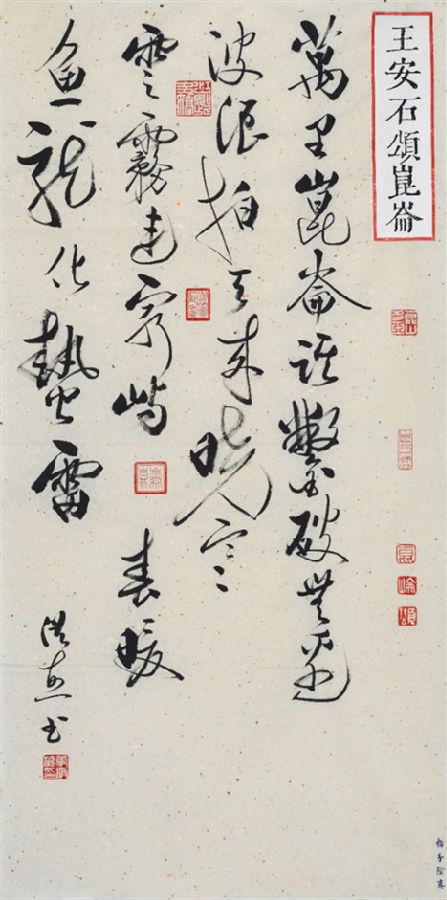 王安石頌崑崙
萬里崑崙誰鑿破無邊
波浪拍天來曉寒
雲霧連窮嶼春暖
魚龍化蟄雷
洪書